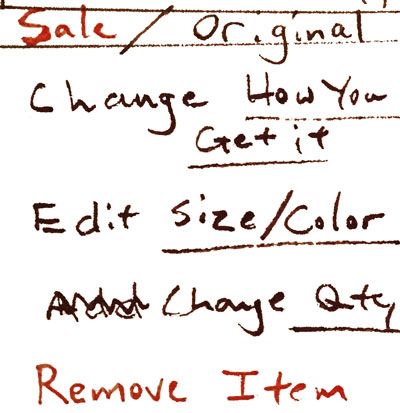 Sale / Original
Change How You
Get it
Edit Size/Color
Change Qty
Remove Item